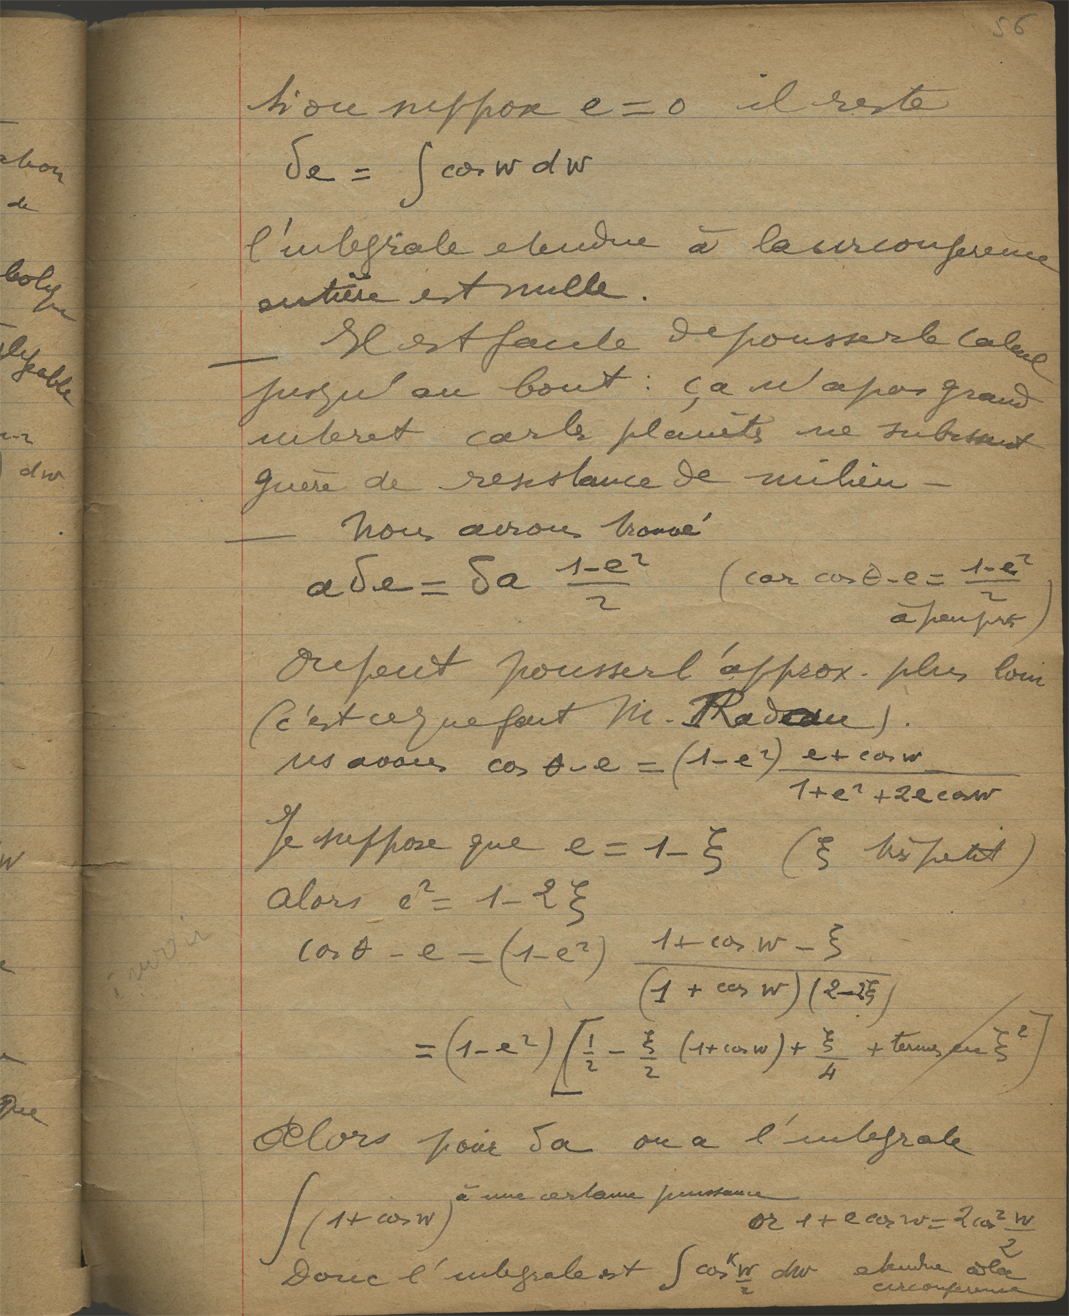 56
Si on suppose e = 0 il reste
δe = ∫ cos w dw
l'integrale etendue à la circonference
entière est nulle.
— Il est facile de pousser le calcul
jusqu'au bout : ça n'a pas grand
interet car les planètes ne subissent
guère de resistance de milieu —
— Nous avons trouvé
a δe = δa (1-e²)/2 (car cos θ - e = (1-e²)/2
à peu près)
On peut pousser l'approx. plus loin
(c'est ce que fait M. Radau).
ns avons cos θ - e = (1-e²) (e + cos w)/(1+e²+2e cos w)
Je suppose que e = 1 - ξ (ξ très petit)
Alors e² = 1 - 2ξ
cos θ - e = (1-e²) (1 + cos w - ξ)/((1 + cos w)(2-2ξ))
= (1-e²) [1/2 - ξ/2 (1+cos w) + ξ/4 + termes en ξ²]
Alors pour δa on a l'integrale
∫ (1+cos w) à une certaine puissance
or 1 + e cos w = 2cos² w/2
Donc l'integrale est ∫ cosᴷ w/2 dw etendue à la
circonference
à revoir
ation
de
dw